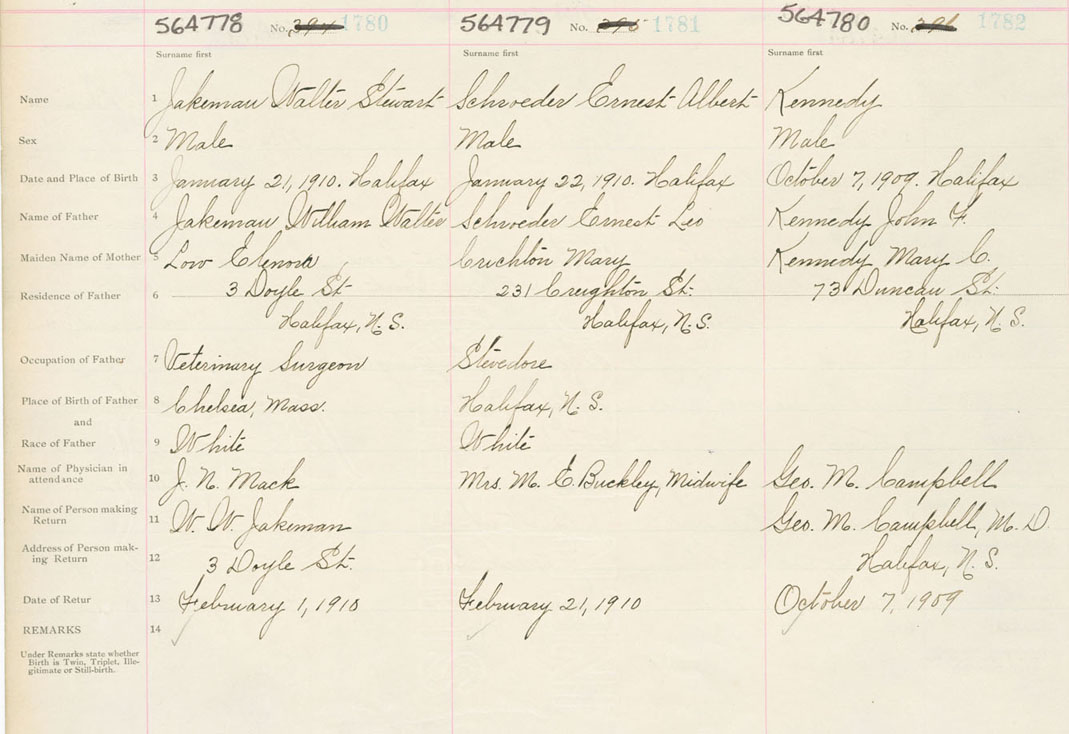 564778 No. 1780 564779 No. 1781 564780 No. 1782
Surname first Surname first Surname first
Name 1 Jakeman Walter Stewart Schroeder Ernest Albert Kennedy
Sex 2 Male Male Male
Date and Place of Birth 3 January 21, 1910. Halifax January 22, 1910. Halifax October 7, 1909. Halifax
Name of Father 4 Jakeman William Walter Schroeder Ernest Leo Kennedy John F.
Maiden Name of Mother 5 Low Elenora Crichton Mary Kennedy Mary C.
Residence of Father 6 3 Doyle St. 231 Creighton St. 73 Duncan St.
Halifax, N. S. Halifax, N. S. Halifax, N. S.
Occupation of Father 7 Veterinary Surgeon Stevedore
Place of Birth of Father 8 Chelsea, Mass. Halifax, N. S.
and
Race of Father 9 White White
Name of Physician in
attendance 10 J. N. Mack Mrs. M. E. Buckley, Midwife Geo. M. Campbell
Name of Person making
Return 11 W. W. Jakeman Geo. M. Campbell, M. D.
Address of Person mak-
ing Return 12 3 Doyle St. Halifax, N. S.
Date of Retur 13 February 1, 1910 February 21, 1910 October 7, 1909
REMARKS 14
Under Remarks state whether
Birth is Twin, Triplet, Ille-
gitimate or Still-birth.